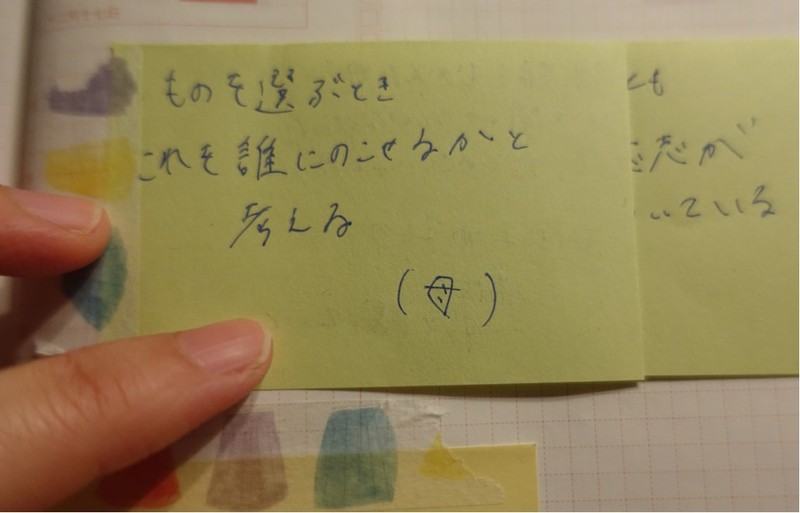 ものを選ぶとき
これを誰にのこせるかと
考える
(母)
とも
意志が
いている